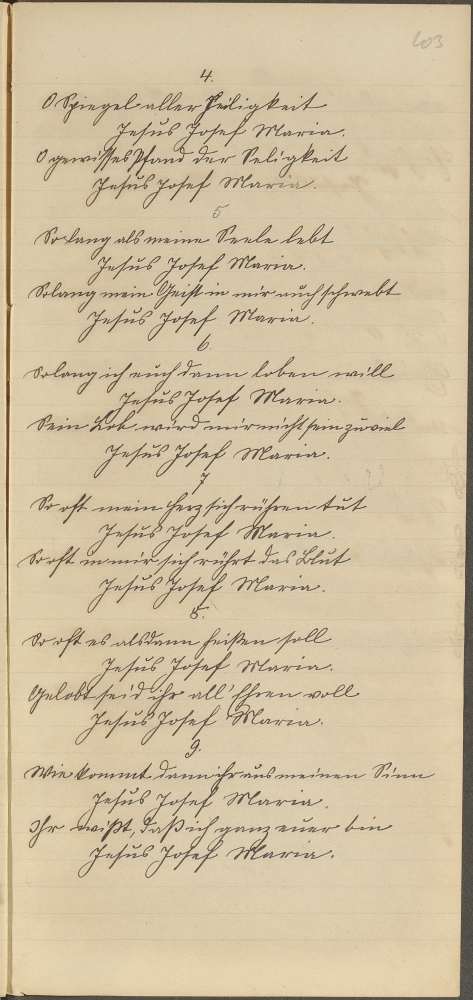 103
4.
O Spiegel aller Heiligkeit
Jesus Josef Maria.
O gewisses Pfand der Seligkeit
Jesus Josef Maria.
5
So lang als meine Seele lebt
Jesus Josef Maria.
Solang mein Geist in mir auch schwebt
Jesus Josef Maria.
6
Solang ich euch dann loben will
Jesus Josef Maria.
Kein Lob wird mir nicht sein zuviel
Jesus Josef Maria.
7
So oft mein Herz sich rühren tut
Jesus Josef Maria.
So oft in mir sich rührt das Blut
Jesus Josef Maria.
8.
So oft es alsdann heißen soll
Jesus Josef Maria.
Gelobt seid ihr all' Ehren voll
Jesus Josef Maria.
9.
Wie kommt dann ihr aus meinen Sinn
Jesus Josef Maria.
Ihr wißt, daß ich ganz euer bin
Jesus Josef Maria.